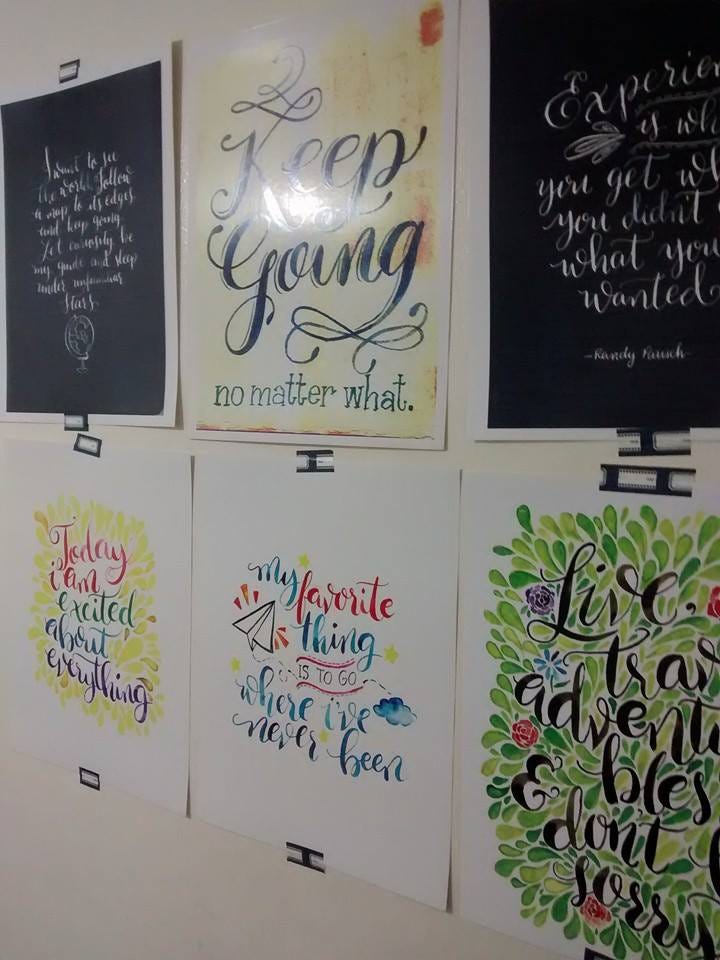 I want to see
the world. Follow
a map to its edges,
and keep going.
Let curiosity be
my guide and sleep
under unfamiliar
stars.
Keep
Going
no matter what.
Experien
is wha
you get wh
you didn't
what you
wanted
-Randy Pausch-
Today
i am
excited
about
everything
my favorite
thing
IS TO GO
where i've
never been
Live,
trav
adventu
bles
& don't
sorry